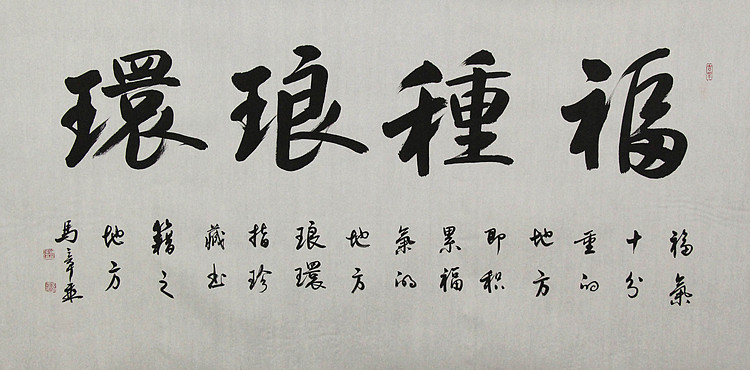 福種琅環
福氣
十分
重的
地方
即積
累福
氣的
地方
琅環
指珍
藏书
籍之
地方
馬章